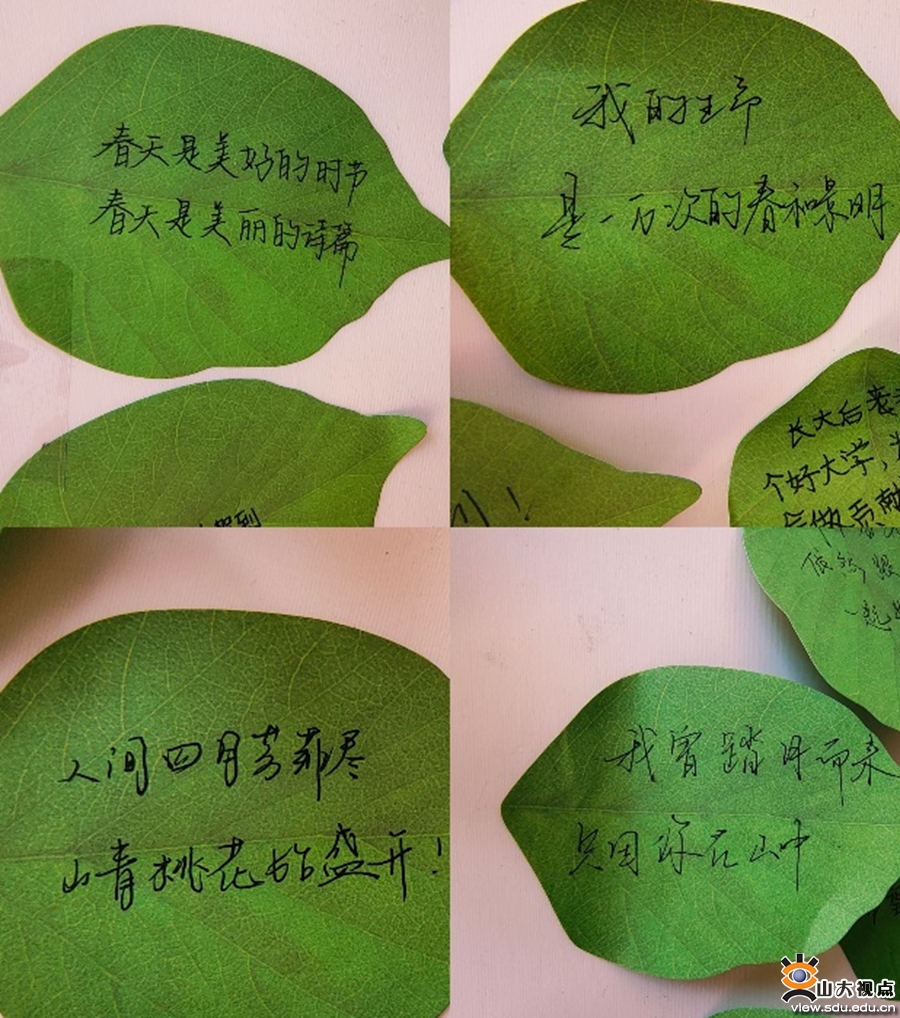 春天是美好的时节
春天是美丽的诗篇
我的生命
是一万次的春和景明
长大后考
个好大学，
做贡献
人间四月芳菲尽
山青桃花始盛开！
依然
一起
我曾踏月而来
只因你在山中
山大视点
view.sdu.edu.cn